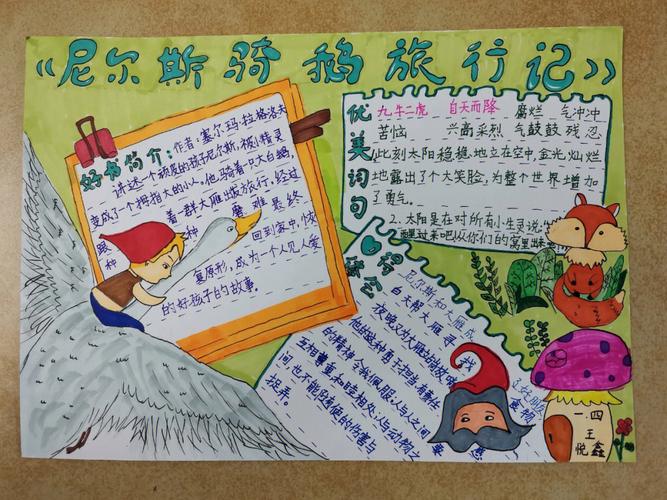 《尼尔斯骑鹅旅行记》
好书简介:作者:塞尔玛·拉格洛夫
讲述一个顽皮的孩子尼尔斯,被小精灵
变成了一个拇指大的小人。他骑着一只大白鹅,
跟着一群大雁出旅行,经过
种种磨难,最终
回到家中,恢
复原形,成为一个人见人爱
的好孩子的故事。
优美词句
九牛二虎 自天而降 腐烂 气冲冲
苦恼 兴高采烈 气鼓鼓 残忍
1,此刻太阳稳稳地立在空中,金光灿烂
地露出了个大笑脸,为整个世界增加
了勇气。
2、太阳是在对所有小生灵说
醒过来吧从你们的窝里出来
心得体会
尼尔斯和大雁成
白天帮大雁寻找食物
夜晚又
的精神令我佩服。人与人之间要
互相尊重和睦相处,人与动物之
间,也不能
捉弄。
一.四
王
悦鑫